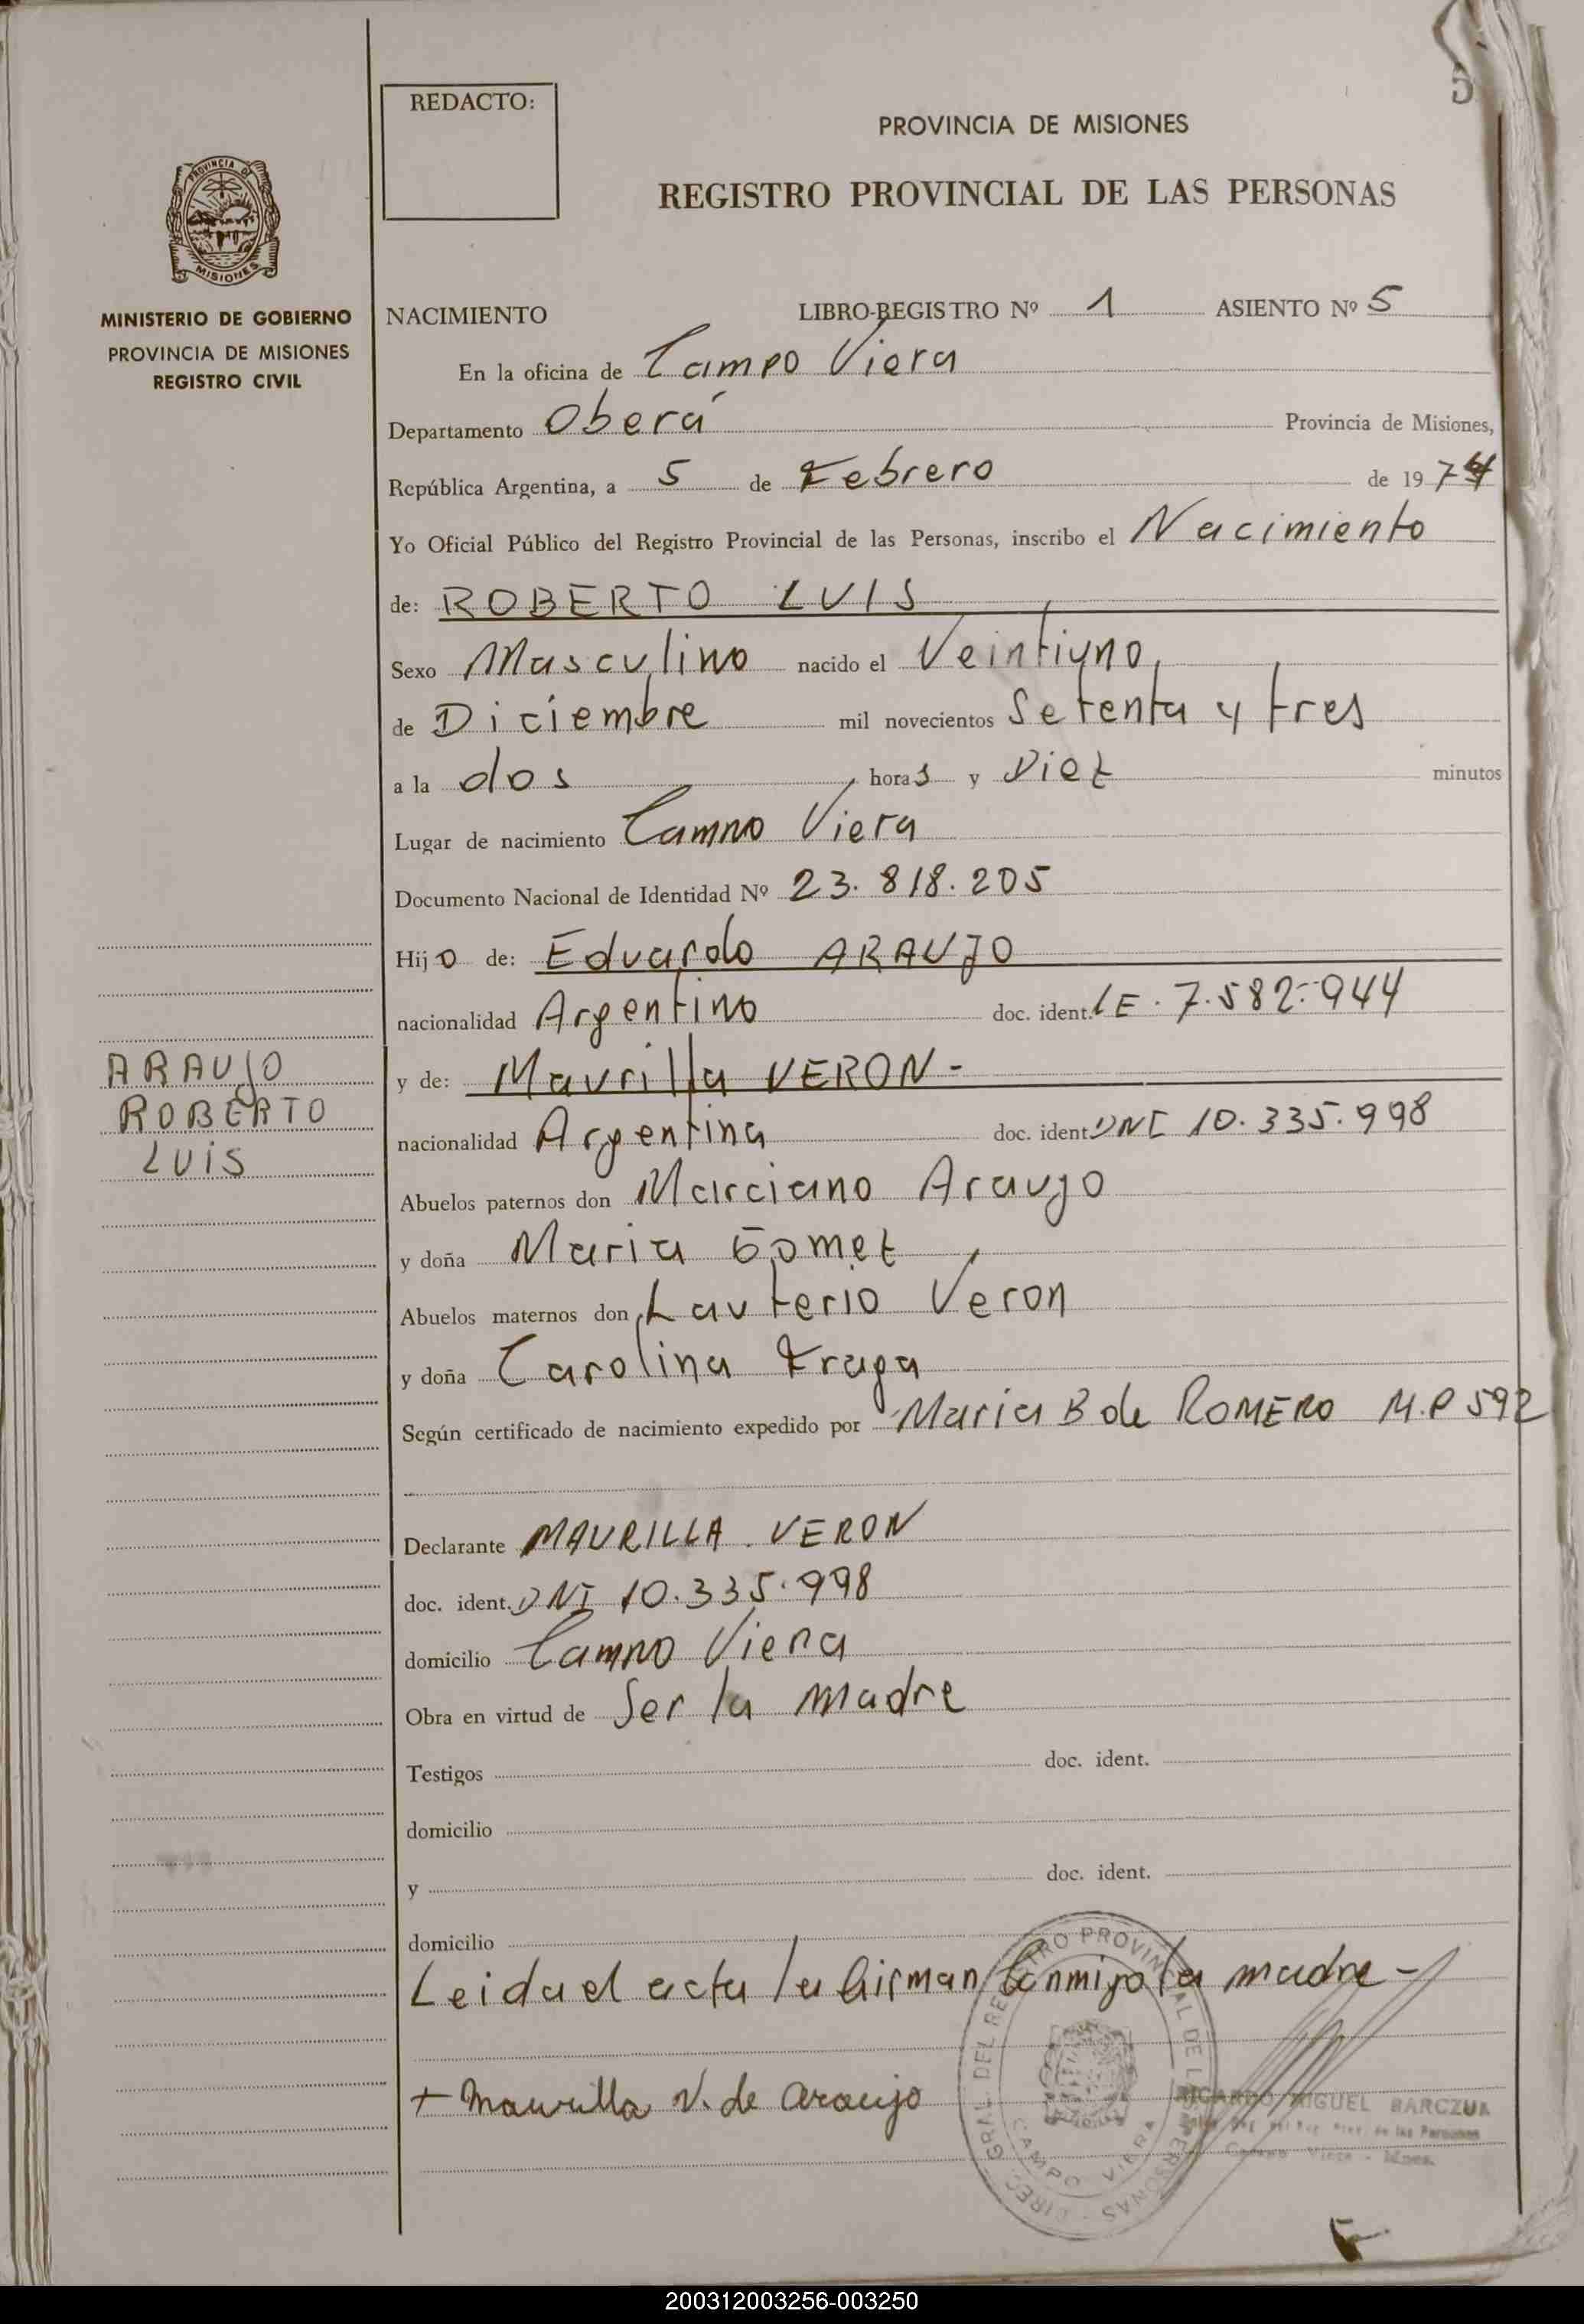 REDACTO:
5
PROVINCIA DE MISIONES
REGISTRO PROVINCIAL DE LAS PERSONAS
PROVINCIA DE
MISIONES
MINISTERIO DE GOBIERNO
PROVINCIA DE MISIONES
REGISTRO CIVIL
NACIMIENTO LIBRO-REGISTRO Nº 1 ASIENTO Nº 5
En la oficina de Campo Viera
Departamento Oberá Provincia de Misiones,
República Argentina, a 5 de Febrero de 1974
Yo Oficial Público del Registro Provincial de las Personas, inscribo el Nacimiento
de: ROBERTO LUIS
Sexo Masculino nacido el Veintiuno
de Diciembre mil novecientos Setenta y tres
a la dos horas y Diez minutos
Lugar de nacimiento Campo Viera
Documento Nacional de Identidad Nº 23.818.205
Hijo de: Eduardo ARAUJO
nacionalidad Argentino doc. ident. LE. 7.582.944
y de: Maurilla VERON -
nacionalidad Argentina doc. ident. DNI 10.335.998
ARAUJO
ROBERTO
LUIS
Abuelos paternos don Marciano Araujo
y doña Maria Gomez
Abuelos maternos don Lauterio Veron
y doña Carolina Fraga
Según certificado de nacimiento expedido por Maria B de ROMERO M.P 592
Declarante MAURILLA. VERON
doc. ident. DNI 10.335.998
domicilio Campo Viera
Obra en virtud de Ser la madre
Testigos doc. ident.
domicilio
y doc. ident.
domicilio
Leida el acta la firman Conmigo la madre -
+ Maurilla V. de Araujo
DIREC. GRAL. DEL REGISTRO PROVINCIAL DE LAS PERSONAS
CAMPO VIERA
RICARDO MIGUEL BARCZUK
de las Personas
Campo Viera - Mnes.
200312003256-003250